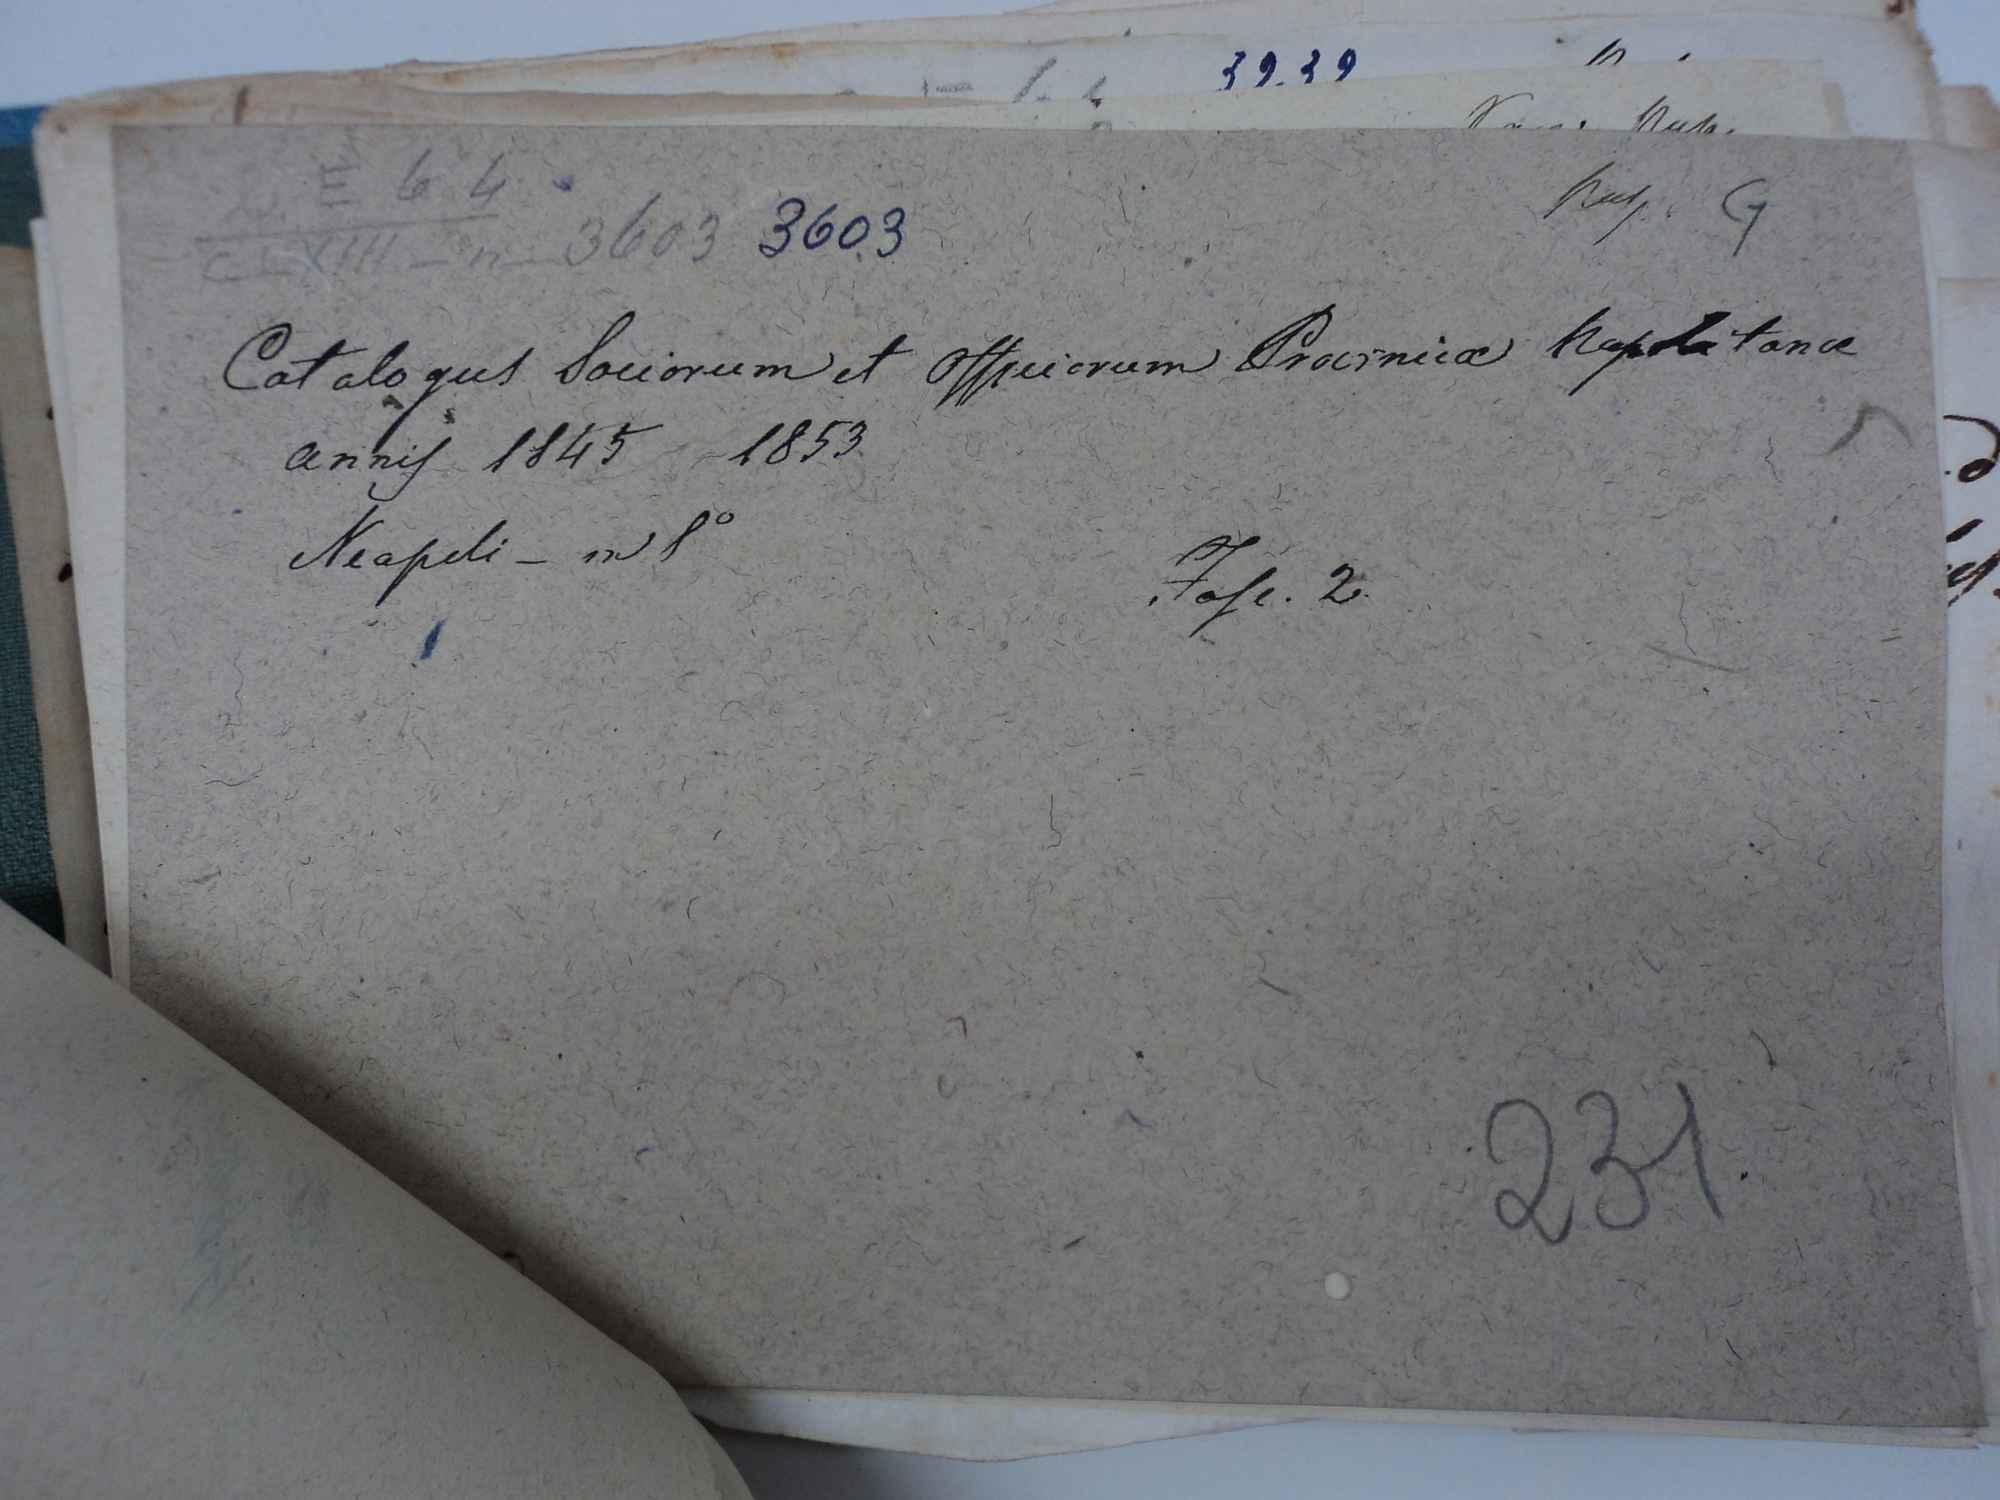 39.39
E 6 4
Nap. G
CLXIII - n 3603 3603
Catalogus Sociorum et Officiorum Provinciæ Napolitanæ
annis 1845 1853
Neapoli - in 8°
Fasc. 2.
231